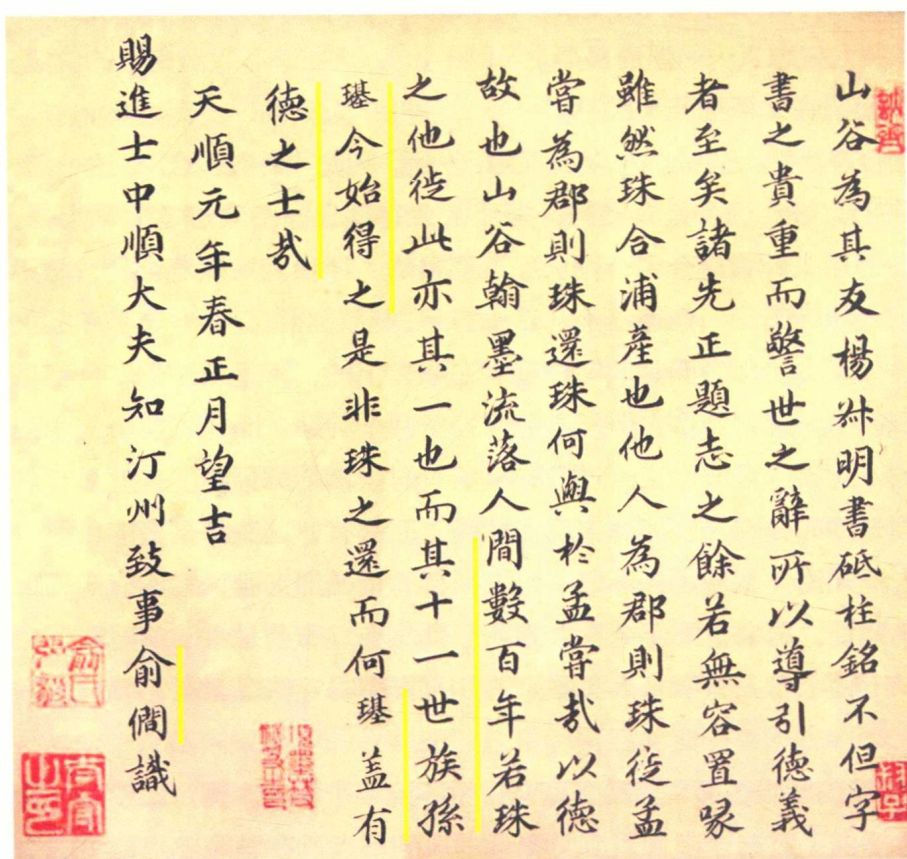 山谷為其友楊叔明書砥柱銘不但字
書之貴重而警世之辭所以導引德義
者至矣諸先正題志之餘若無容置喙
雖然珠合浦産也他人為郡則珠徙孟
嘗為郡則珠還珠何與於孟嘗㢤以德
故也山谷翰墨流落人間數百年若珠
之他徙此亦其一也而其十一世族孫
璂今始得之是非珠之還而何璂盖有
德之士㢤
天順元年春正月望吉
賜進士中順大夫知汀州致事俞僩識